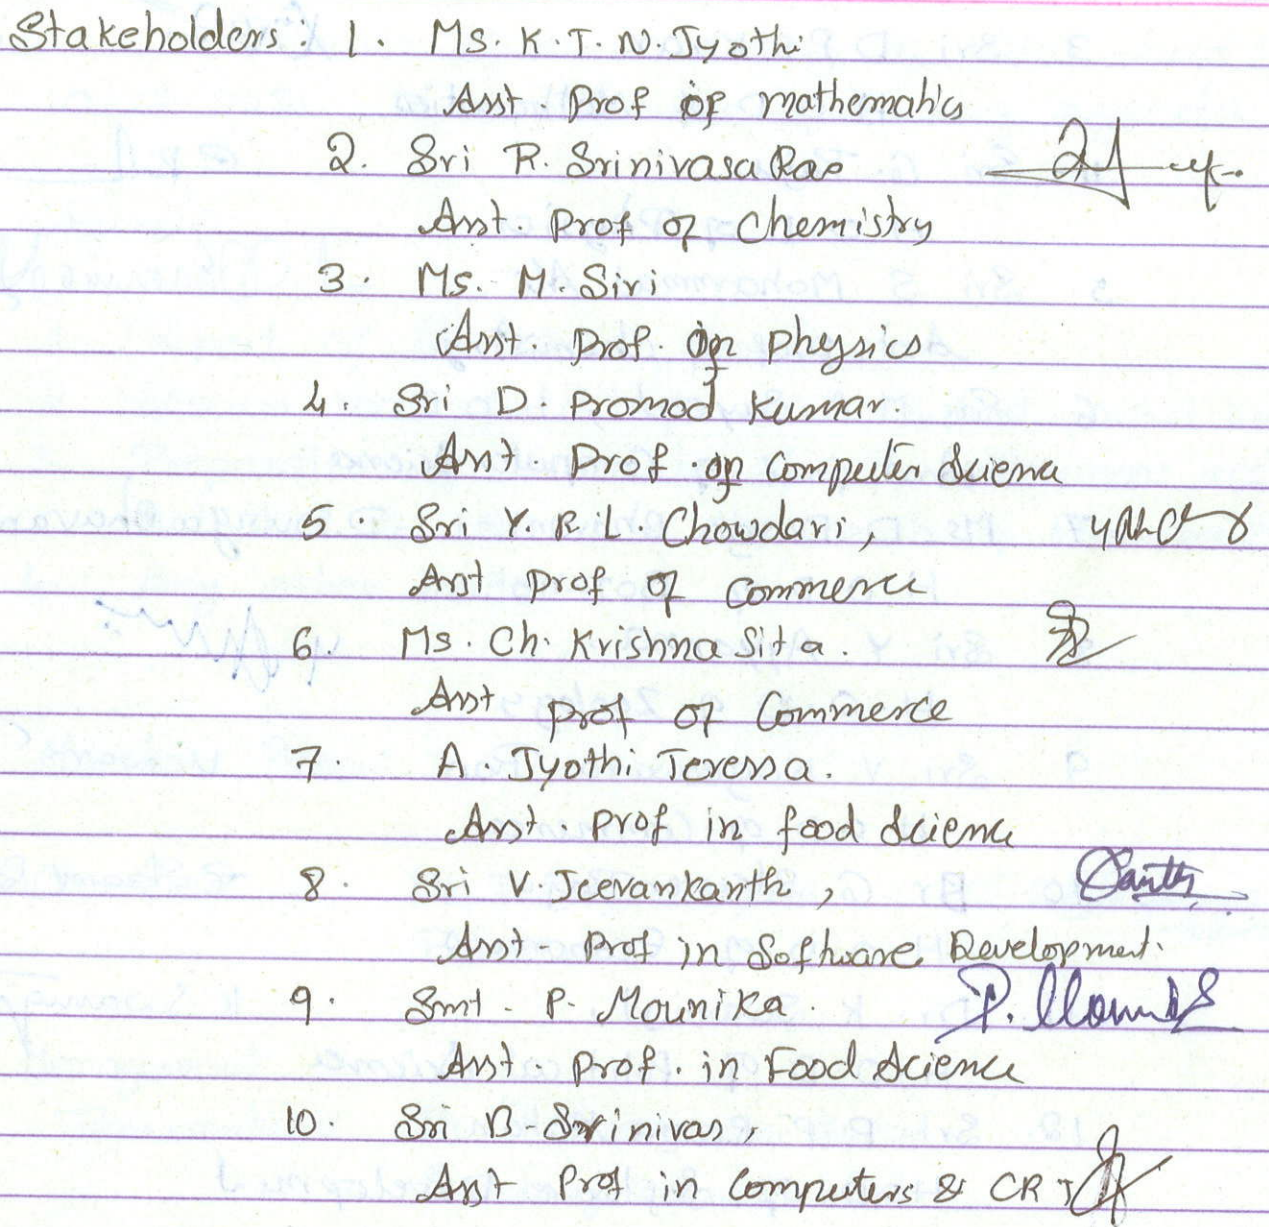 Stakeholders: 1. Ms. K. T. N. Jyothi
Asst. Prof of mathematics
2. Sri R. Srinivasa Rao
Asst Prof of Chemistry
3. Ms. M. Siri
Asst. Prof. in Physics
4. Sri D. Promod Kumar.
Asst Prof. in Computer Science
5. Sri Y. R. L. Chowdari,
Asst Prof of Commerce
6. Ms. Ch. Krishna Sita.
Asst prof of Commerce
7. A. Jyothi Teressa.
Asst. Prof in food Science
8. Sri V. Jeevankanth,
Asst. Prof in Software Development.
9. Smt. P. Mounika. P. Mounika
Asst. Prof. in Food Science
10. Sri B. Srinivas,
Asst Prof in Computers & CRT